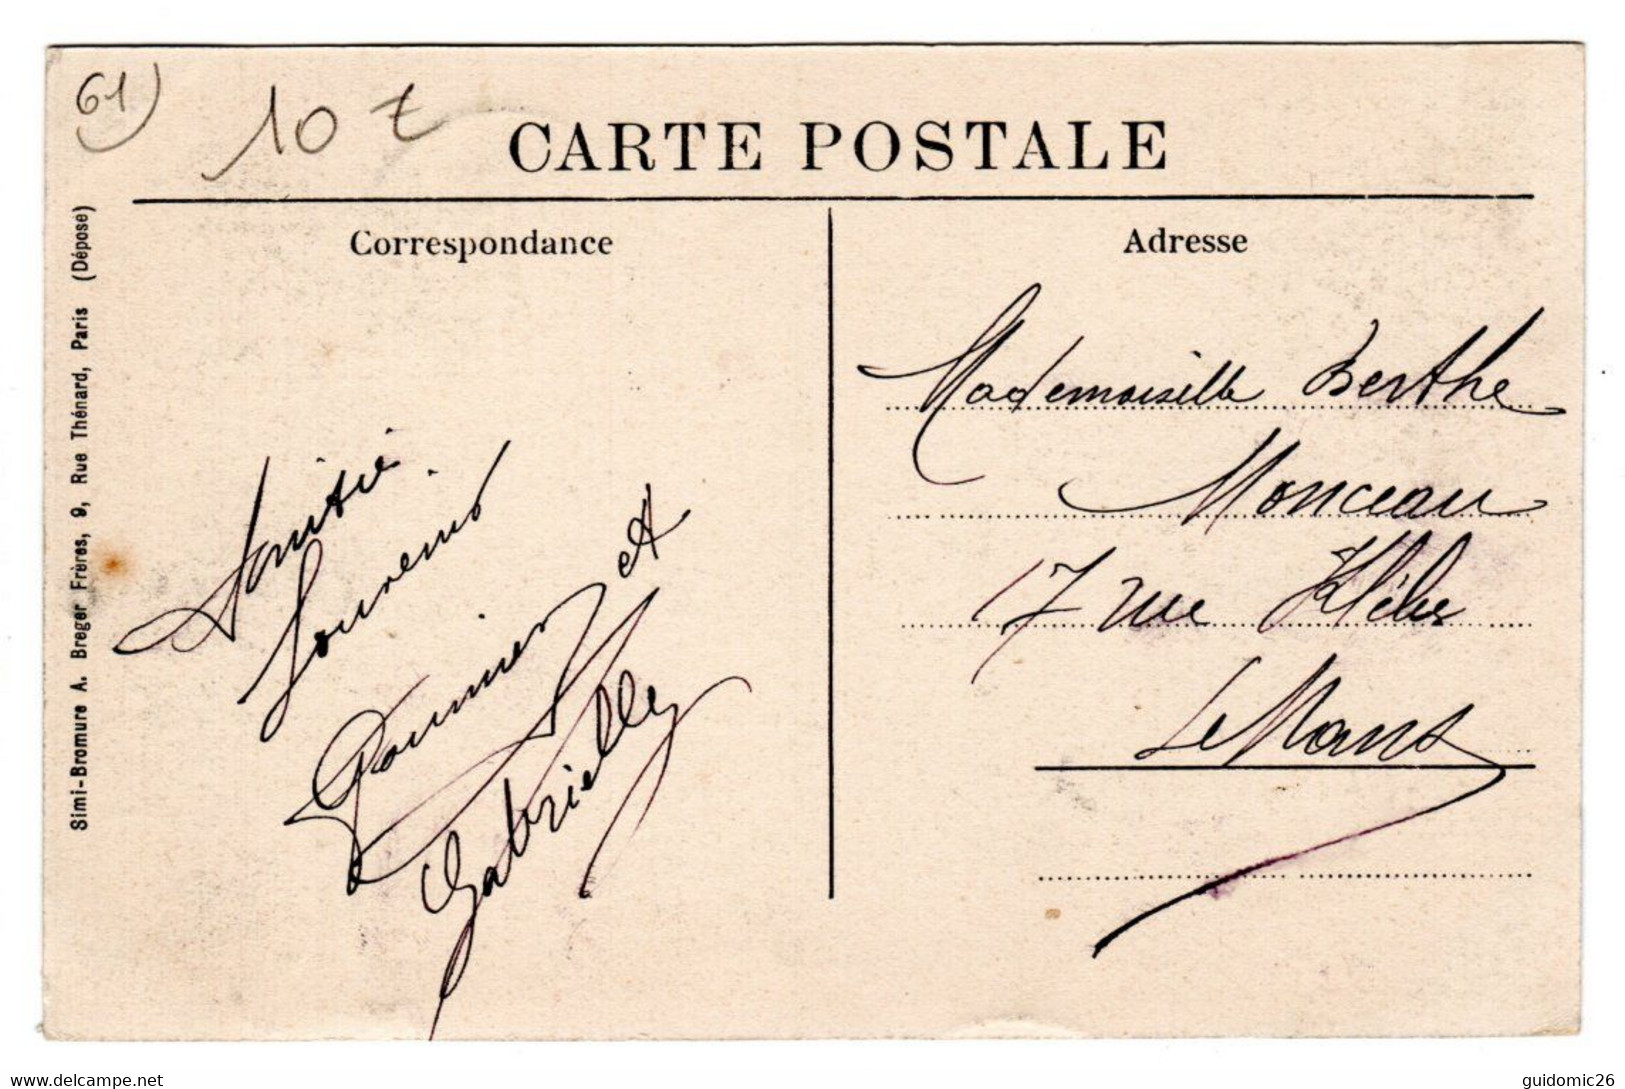 61
10 €
CARTE POSTALE
Correspondance
Adresse
Simi-Bromure A. Breger Frères, 9, Rue Thénard, Paris (Déposé)
Amitié.
Souvenir
et
Gabrielle
Mademoiselle Berthe
Monceau
17 rue Kléber
Le Mans
delcampe.net
guidomic26